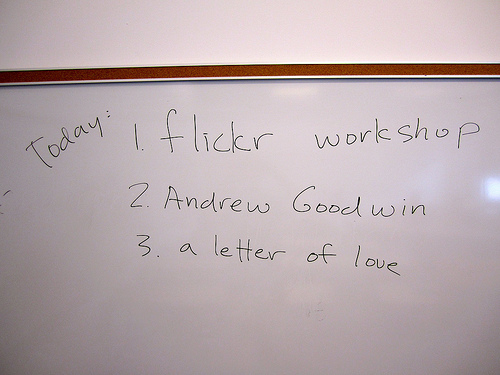 Today:
1. flickr workshop
2. Andrew Goodwin
3. a letter of love